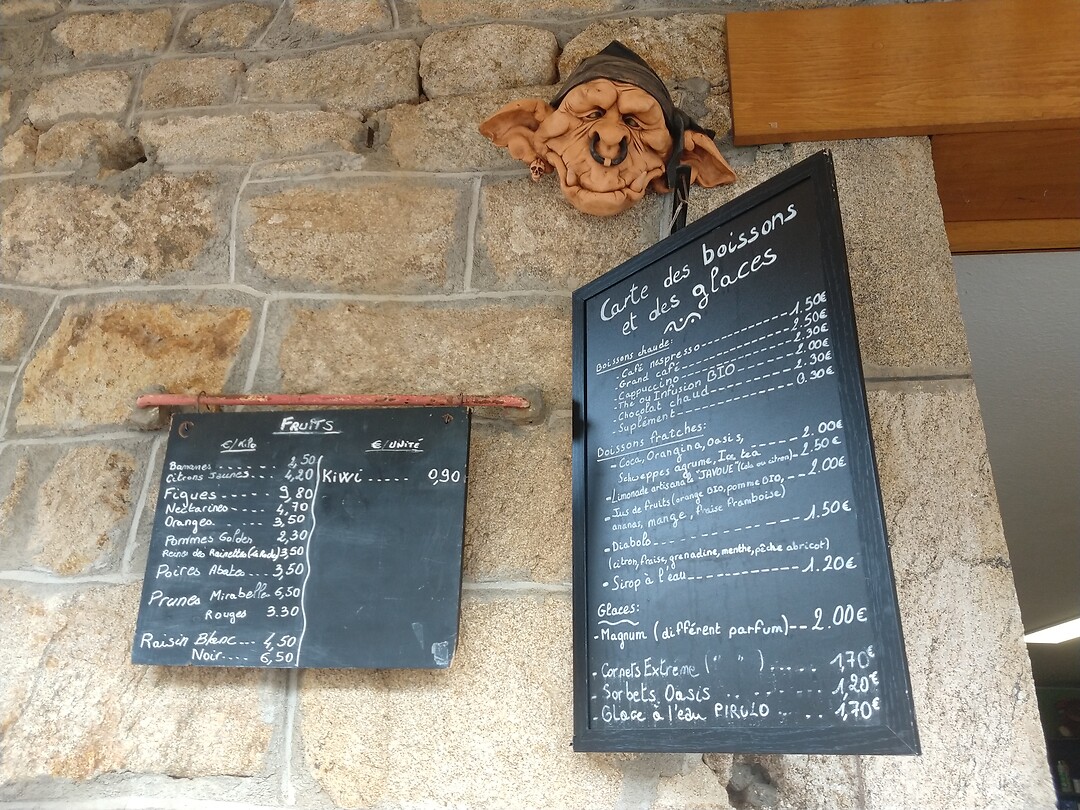 FRUITS
€/Kilo
€/UNITÉ
Bananes ..... 2,50
Citrons Jaunes... 4,20
Figues ..... 9,80
Nectarines ..... 4,70
Oranges ..... 3,50
Pommes Golden 2,30
Reine des Reinettes 3,50
Poires Abates.... 3,50
Prunes Mirabelle 6,50
Rouges 3.30
Raisin Blanc.... 4,50
Noir.... 6,50
Kiwi ..... 0,90
Carte des boissons
et des glaces
Boissons chaude:
- Café nespresso --- 1.50€
- Grand café --- 2.50€
- Cappuccino --- 2.30€
- Thé ou Infusion BIO --- 2.00€
- Chocolat chaud --- 2.30€
- Suplément --- 0.30€
Boissons fraîches:
- Coca, Orangina, Oasis,
Schweppes agrume, Ice tea --- 2.00€
- Limonade artisanale "JAVOUE" (Cola ou citron) - 2.50€
- Jus de fruits (orange BIO, pomme BIO, --- 2.00€
ananas, mangue, fraise framboise)
- Diabolo --- 1.50€
(citron, fraise, grenadine, menthe, pêche abricot)
- Sirop à l'eau --- 1.20€
Glaces:
- Magnum (différent parfum) -- 2.00€
- Cornets Extreme ( " " ) ..... 1,70€
- Sorbets Oasis ..... 1,20€
- Glace à l'eau PIRULO .... 1,70€